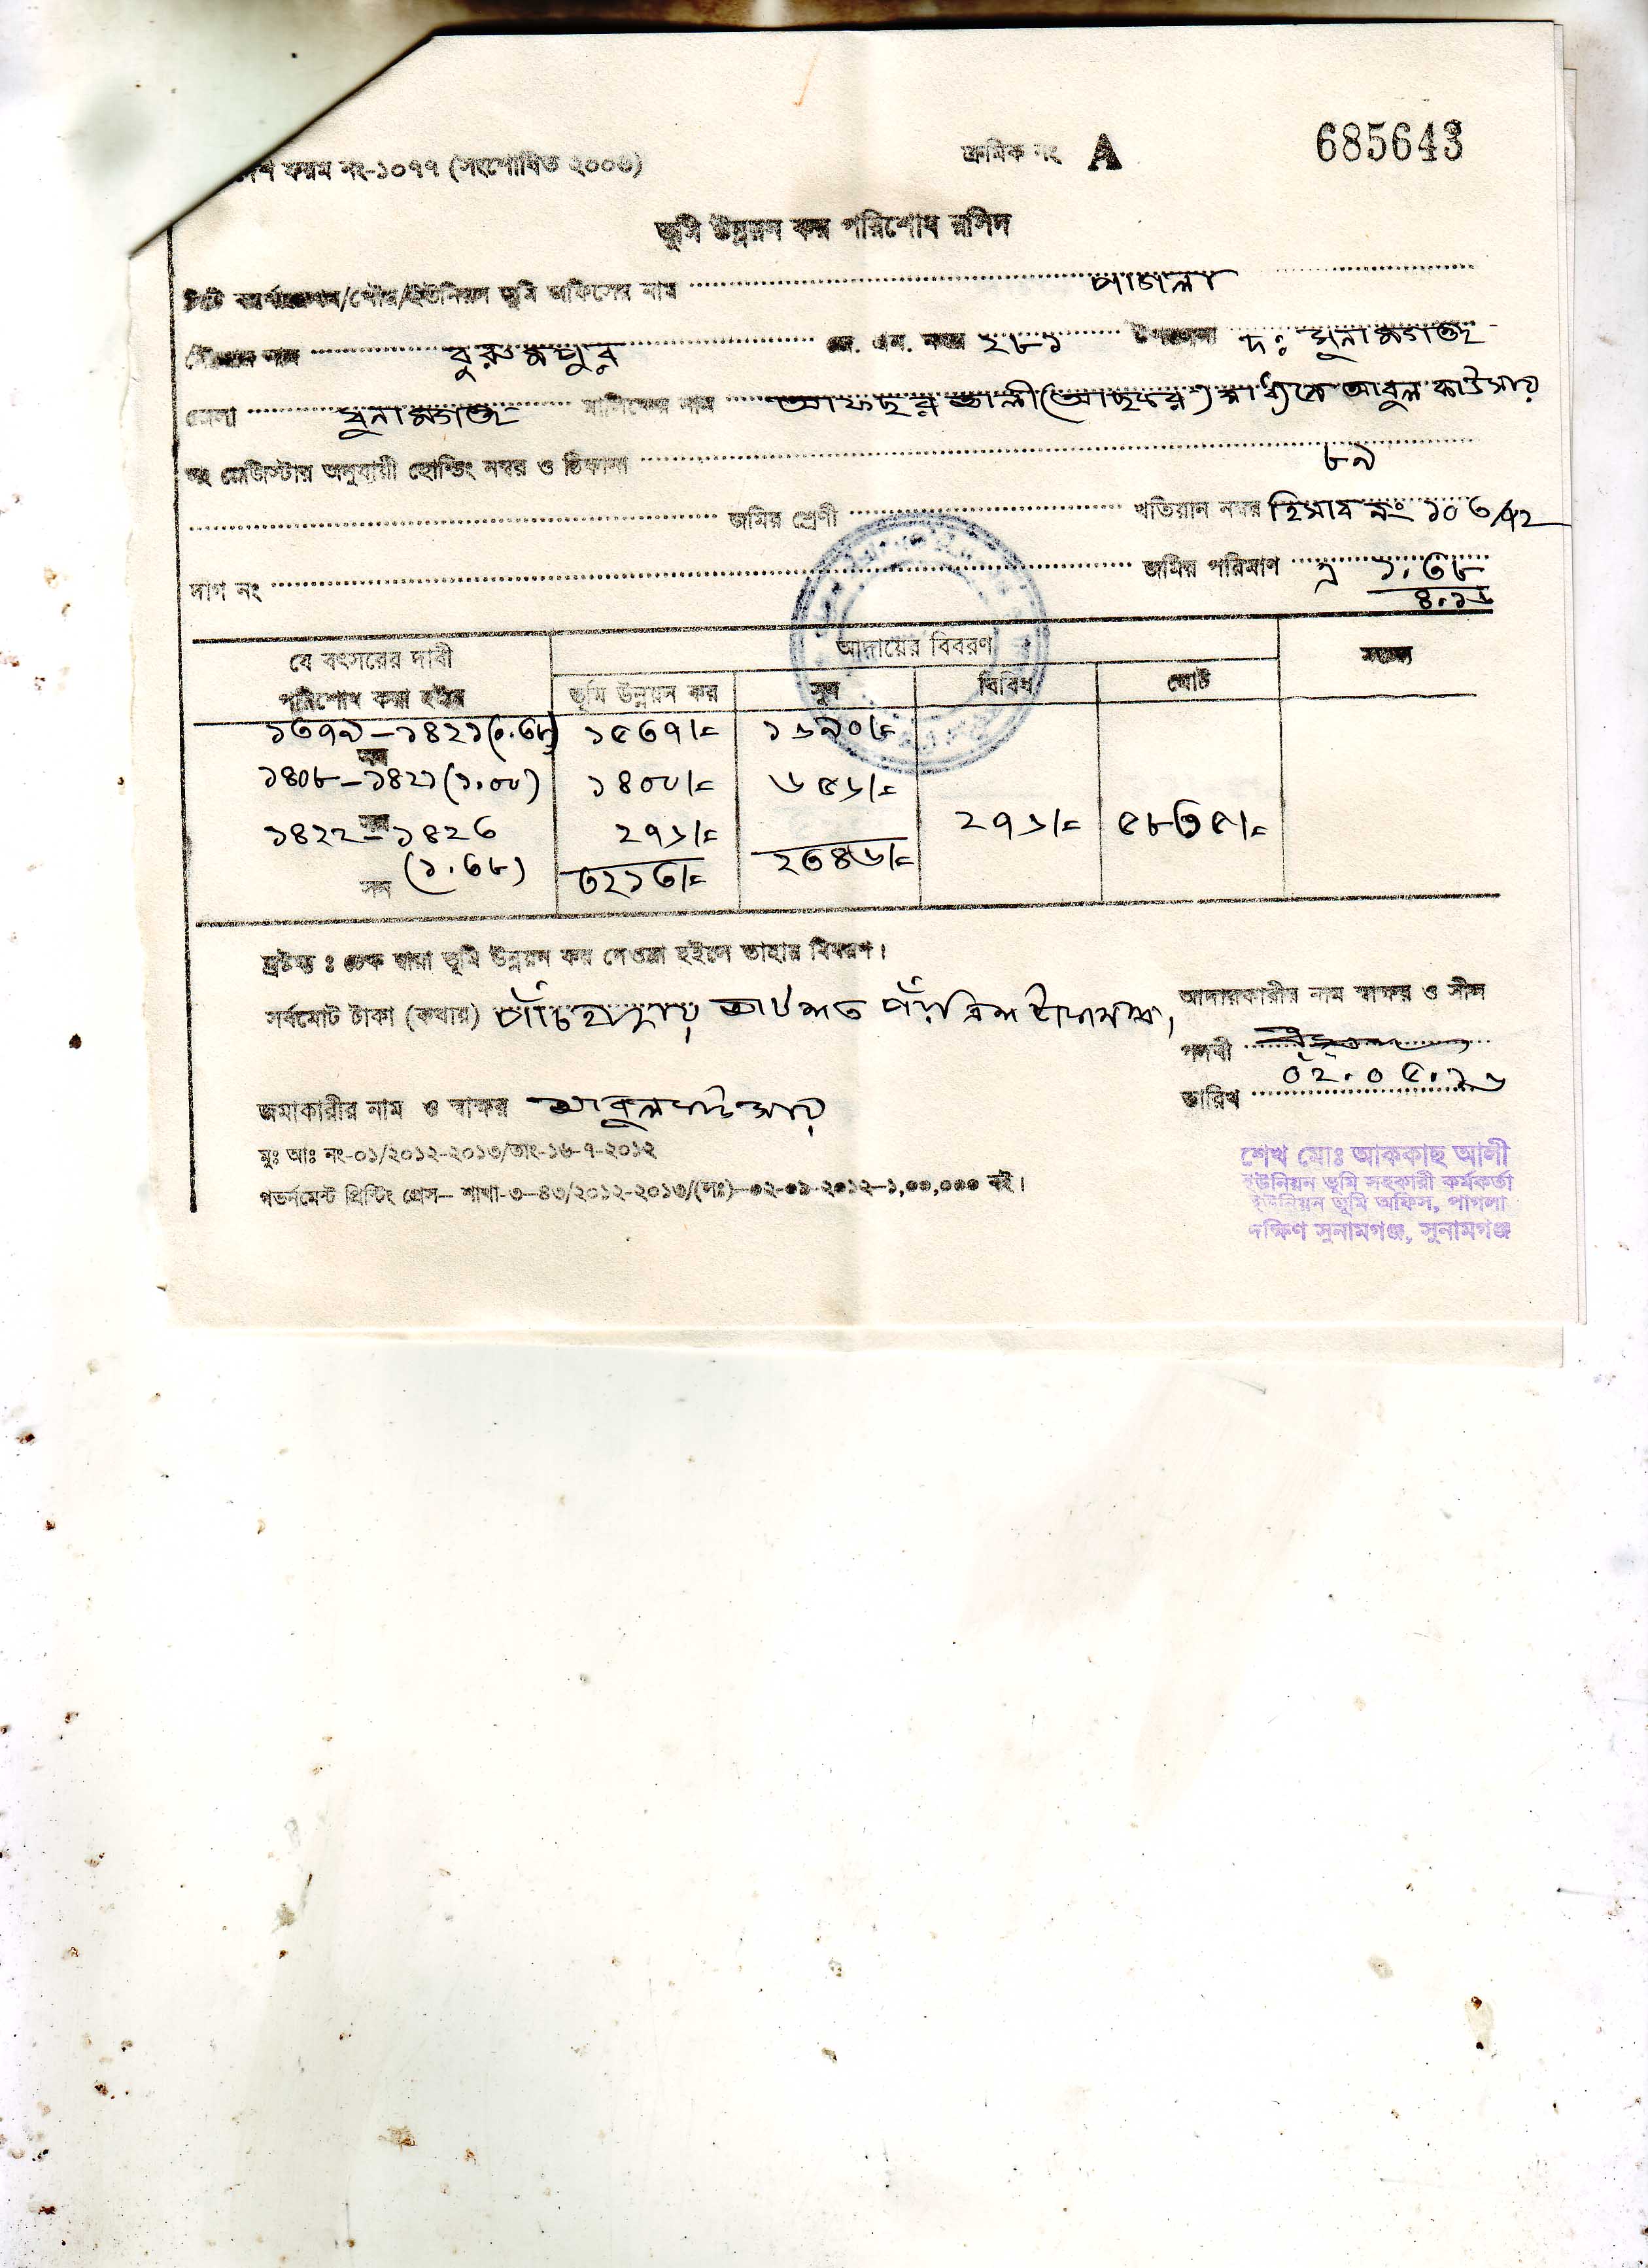 ফরম নং-১০৭৭ (সংশোধিত ২০০৩) ক্রমিক নং A 685643
ভূমি উন্নয়ন কর পরিশোধ রসিদ
সিটি কর্পোরেশন/পৌর/ইউনিয়ন ভূমি অফিসের নাম পাগলা
মৌজার নাম জে. এল. নম্বর ২৮১ উপজেলা দঃ সুনামগঞ্জ
জেলা সুনামগঞ্জ মালিকের নাম আফছর আলী আবুল কাউসার
নং রেজিস্টার অনুযায়ী হোল্ডিং নম্বর ও ঠিকানা ৮৯
জমির শ্রেণী খতিয়ান নম্বর হিসাব নং ১০৩/৭২
দাগ নং জমির পরিমাণ ১.৩৮
৪.১৮
যে বৎসরের দাবী আদায়ের বিবরণ মন্তব্য
পরিশোধ করা হইল ভূমি উন্নয়ন কর সুদ বিবিধ মোট
১৩৭৯-১৪২১ ১৫৩৭/= ১৬৯০/=
সন
১৪০৮-১৪২১(১.০০) ১৪০০/= ৬৫৬/=
সন
১৪২২-১৪২৩ ২৭৬/= ২৭৬/= ৫৮৩৫/=
সন (১.৩৮) ৩২১৩/= ২৩৪৬/=
দ্রষ্টব্য : চেক দ্বারা ভূমি উন্নয়ন কর দেওয়া হইলে তাহার বিবরণ।
সর্বমোট টাকা (কথায়) পাঁচ হাজার আটশত পঁয়ত্রিশ টাকা মাত্র।
আদায়কারীর নাম স্বাক্ষর ও সীল
পদবী
তারিখ ০২.০৫.১৬
জমাকারীর নাম ও স্বাক্ষর আবুল কাউসার
মুঃ আঃ নং-০১/২০১২-২০১৩/তাং-১৬-৭-২০১২
গভর্নমেন্ট প্রিন্টিং প্রেস– শাখা-৩–৪৩/২০১২-২০১৩/(দঃ)–০২-০৯-২০১২–১,০০,০০০ বই।
শেখ মোঃ আককাছ আলী
ইউনিয়ন ভূমি সহকারী কর্মকর্তা
ইউনিয়ন ভূমি অফিস, পাগলা
দক্ষিণ সুনামগঞ্জ, সুনামগঞ্জ